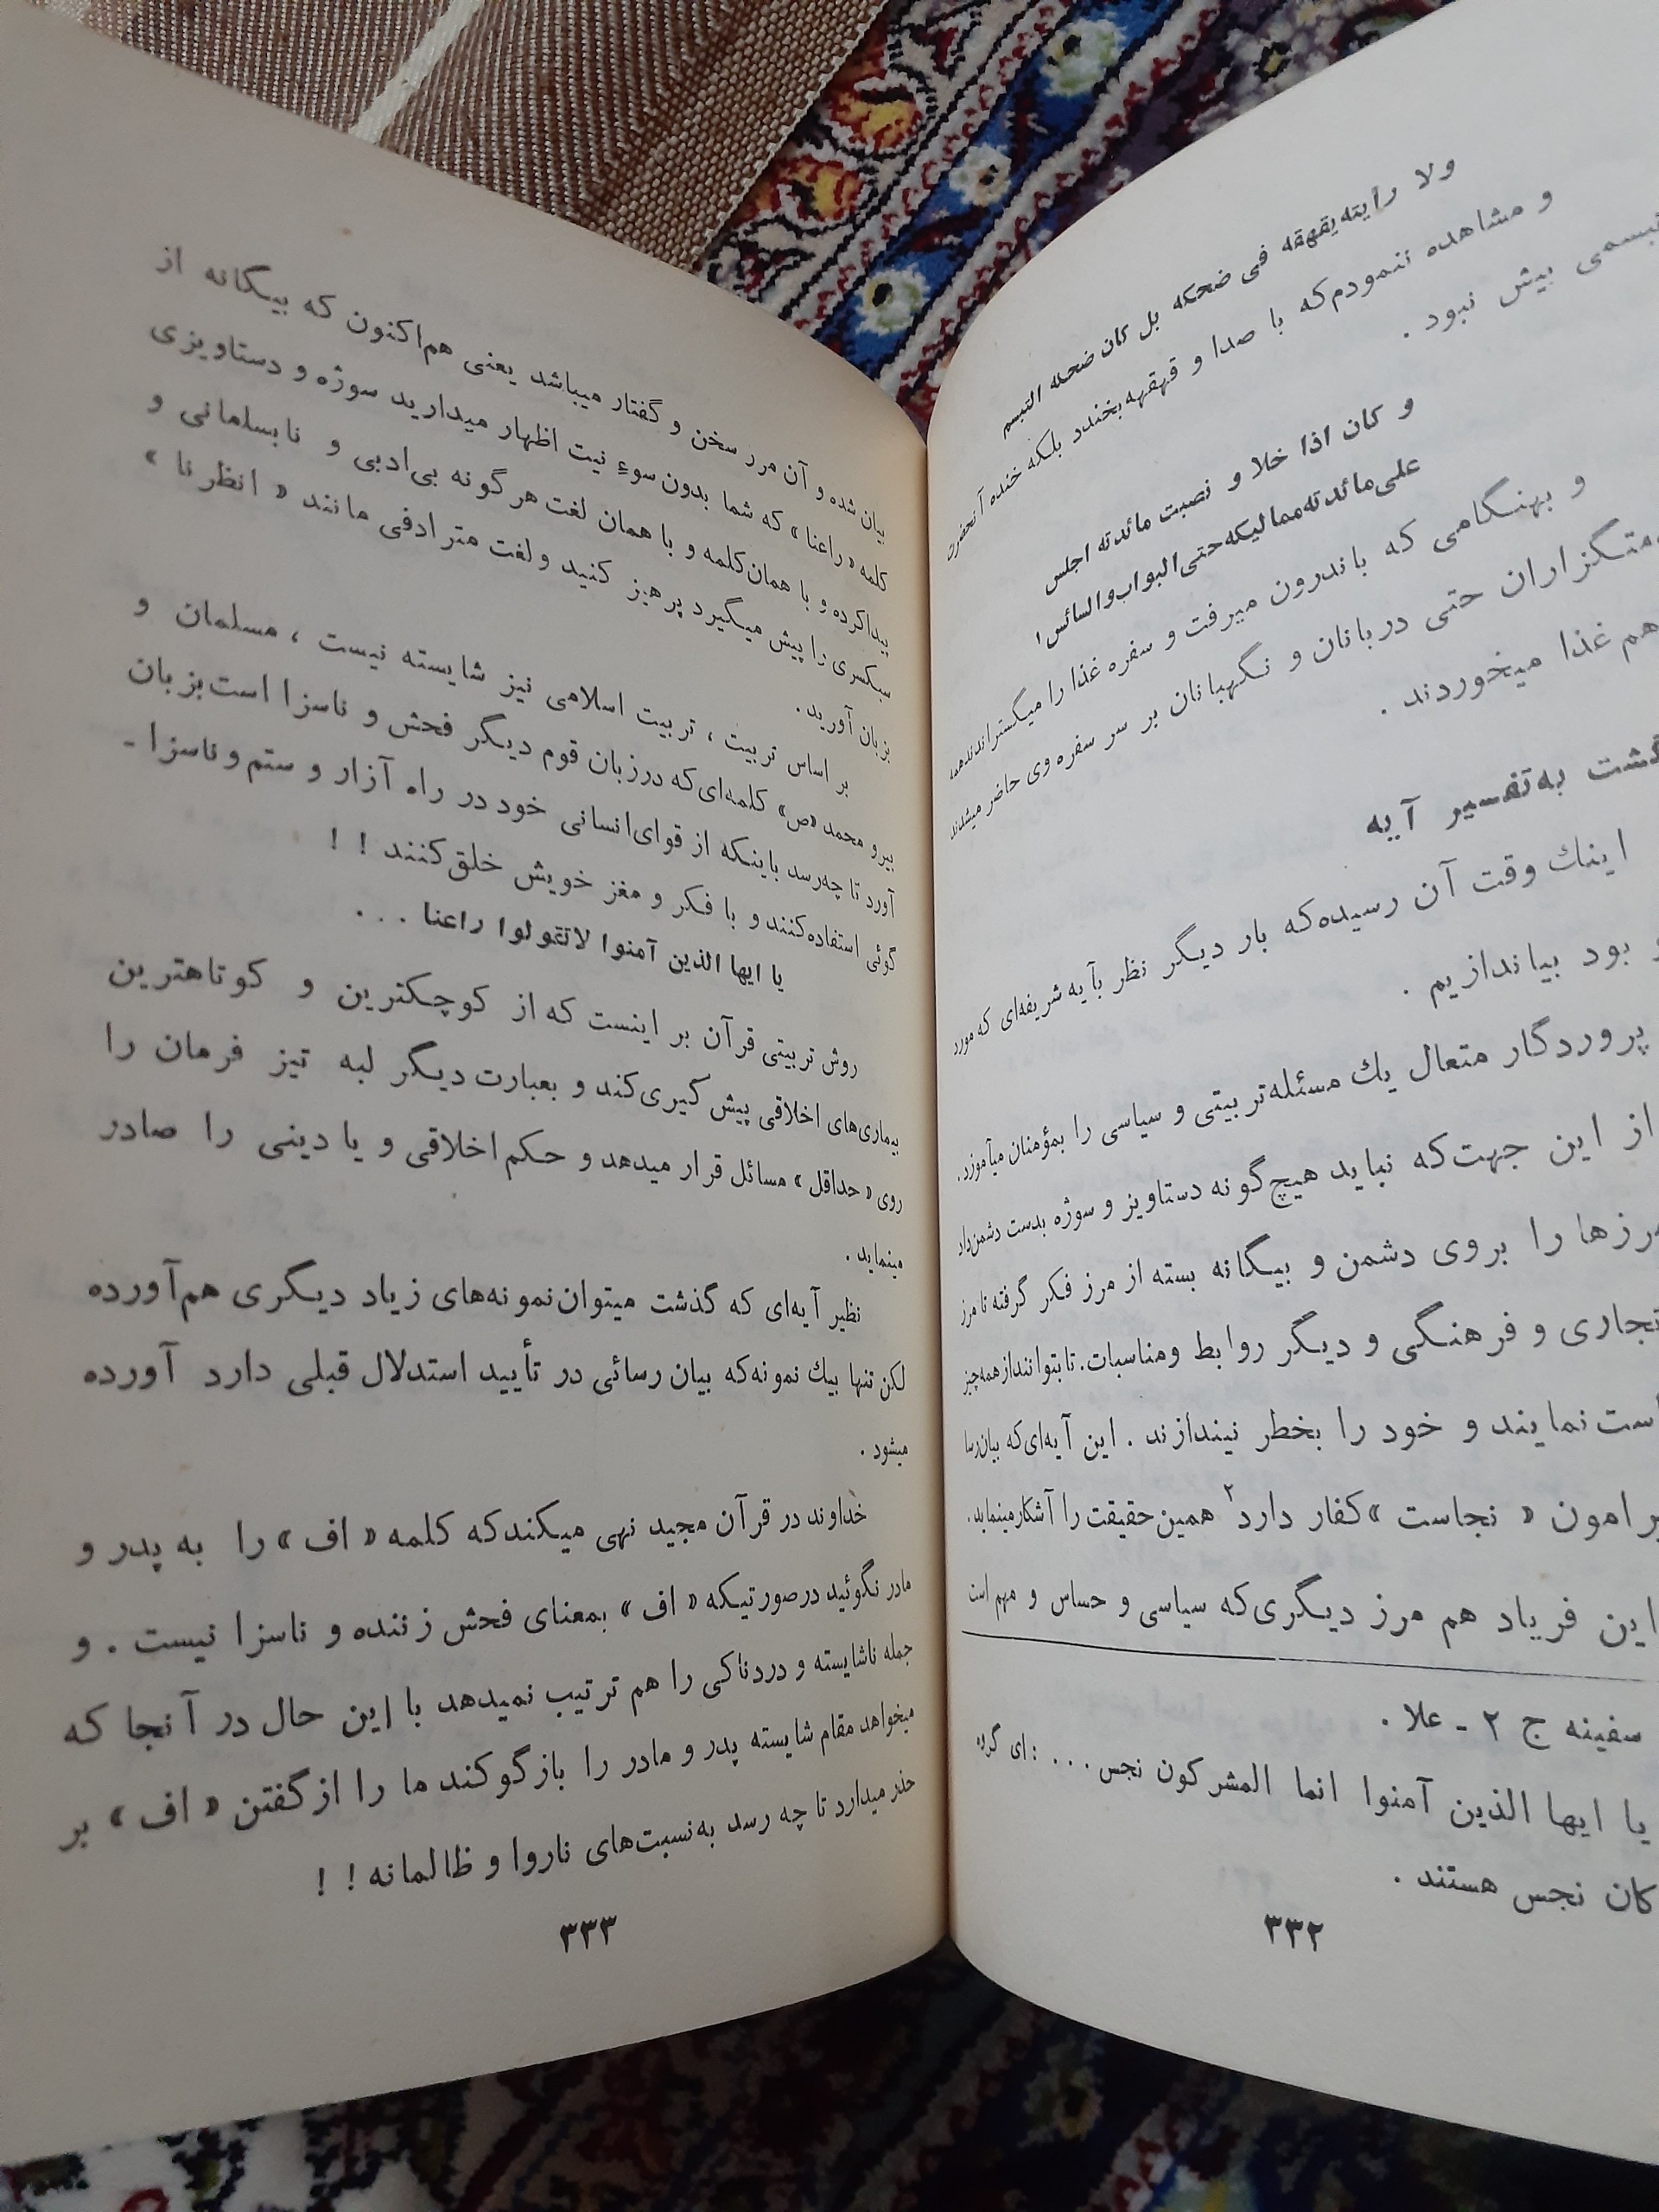 ولا رایته یقهقه فی ضحکه بل کان ضحکه التبسم
و مشاهده ننمودم که با صدا و قهقهه بخندد بلکه خنده آنحضرت
تبسمی بیش نبود .
و کان اذا خلا و نصبت مائدته اجلس
علی مائدته ممالیکه حتی البواب والسائس ۱
و بهنگامی که باندرون میرفت و سفره غذا را میگستراندند همه
حتی دربانان و نگهبانان بر سر سفره وی حاضر میشدند
هم غذا میخوردند .
به تفسیر آیه
اینك وقت آن رسیده که بار دیگر نظر بآیه شریفه‌ای که مورد
بود بیاندازیم .
پروردگار متعال یك مسئله تربیتی و سیاسی را بمؤمنان میآموزد .
از این جهت که نباید هیچ گونه دستاویز و سوژه بدست دشمن داد
مرزها را بروی دشمن و بیگانه بسته از مرز فکر گرفته تا مرز
تجاری و فرهنگی و دیگر روابط ومناسبات . تا بتوانند از همه چیز
نمایند و خود را بخطر نیندازند . این آیه‌ای که بیان رسا
« نجاست » کفار دارد ۲ همین حقیقت را آشکار مینماید .
این فریاد هم مرز دیگری که سیاسی و حساس و مهم است
سفینه ج ۲ - علا .
یا ایها الذین آمنوا انما المشرکون نجس . . . : ای گروه
نجس هستند .
۳۳۲
بیان شده و آن مرز سخن و گفتار میباشد یعنی هم اکنون که بیگانه از
کلمه « راعنا » که شما بدون سوء نیت اظهار میدارید سوژه و دستاویزی
پیدا کرده و با همان کلمه و با همان لغت هر گونه بی‌ادبی و نابسامانی و
سبکسری را پیش میگیرد پرهیز کنید ولغت مترادفی مانند « انظرنا »
بزبان آورید .
بر اساس تربیت ، تربیت اسلامی نیز شایسته نیست ، مسلمان و
پیرو محمد «ص» کلمه‌ای که در زبان قوم دیگر فحش و ناسزا است بزبان
آورد تا چه رسد باینکه از قوای انسانی خود در راه آزار و ستم و ناسزا -
گوئی استفاده کنند و با فکر و مغز خویش خلق کنند ! !
یا ایها الذین آمنوا لاتقولوا راعنا . . .
روش تربیتی قرآن بر اینست که از کوچکترین و کوتاهترین
بیماری‌های اخلاقی پیش گیری کند و بعبارت دیگر لبه تیز فرمان را
روی « حداقل » مسائل قرار میدهد و حکم اخلاقی و یا دینی را صادر
مینماید .
نظیر آیه‌ای که گذشت میتوان نمونه‌های زیاد دیگری هم آورده
لکن تنها بیك نمونه که بیان رسائی در تأیید استدلال قبلی دارد آورده
میشود .
خداوند در قرآن مجید نهی میکند که کلمه « اف » را به پدر و
مادر نگوئید در صورتیکه « اف » بمعنای فحش زننده و ناسزا نیست . و
جمله ناشایسته و دردناکی را هم ترتیب نمیدهد با این حال در آنجا که
میخواهد مقام شایسته پدر و مادر را بازگو کند ما را از گفتن « اف » بر
حذر میدارد تا چه رسد به نسبت‌های ناروا و ظالمانه ! !
۳۳۳